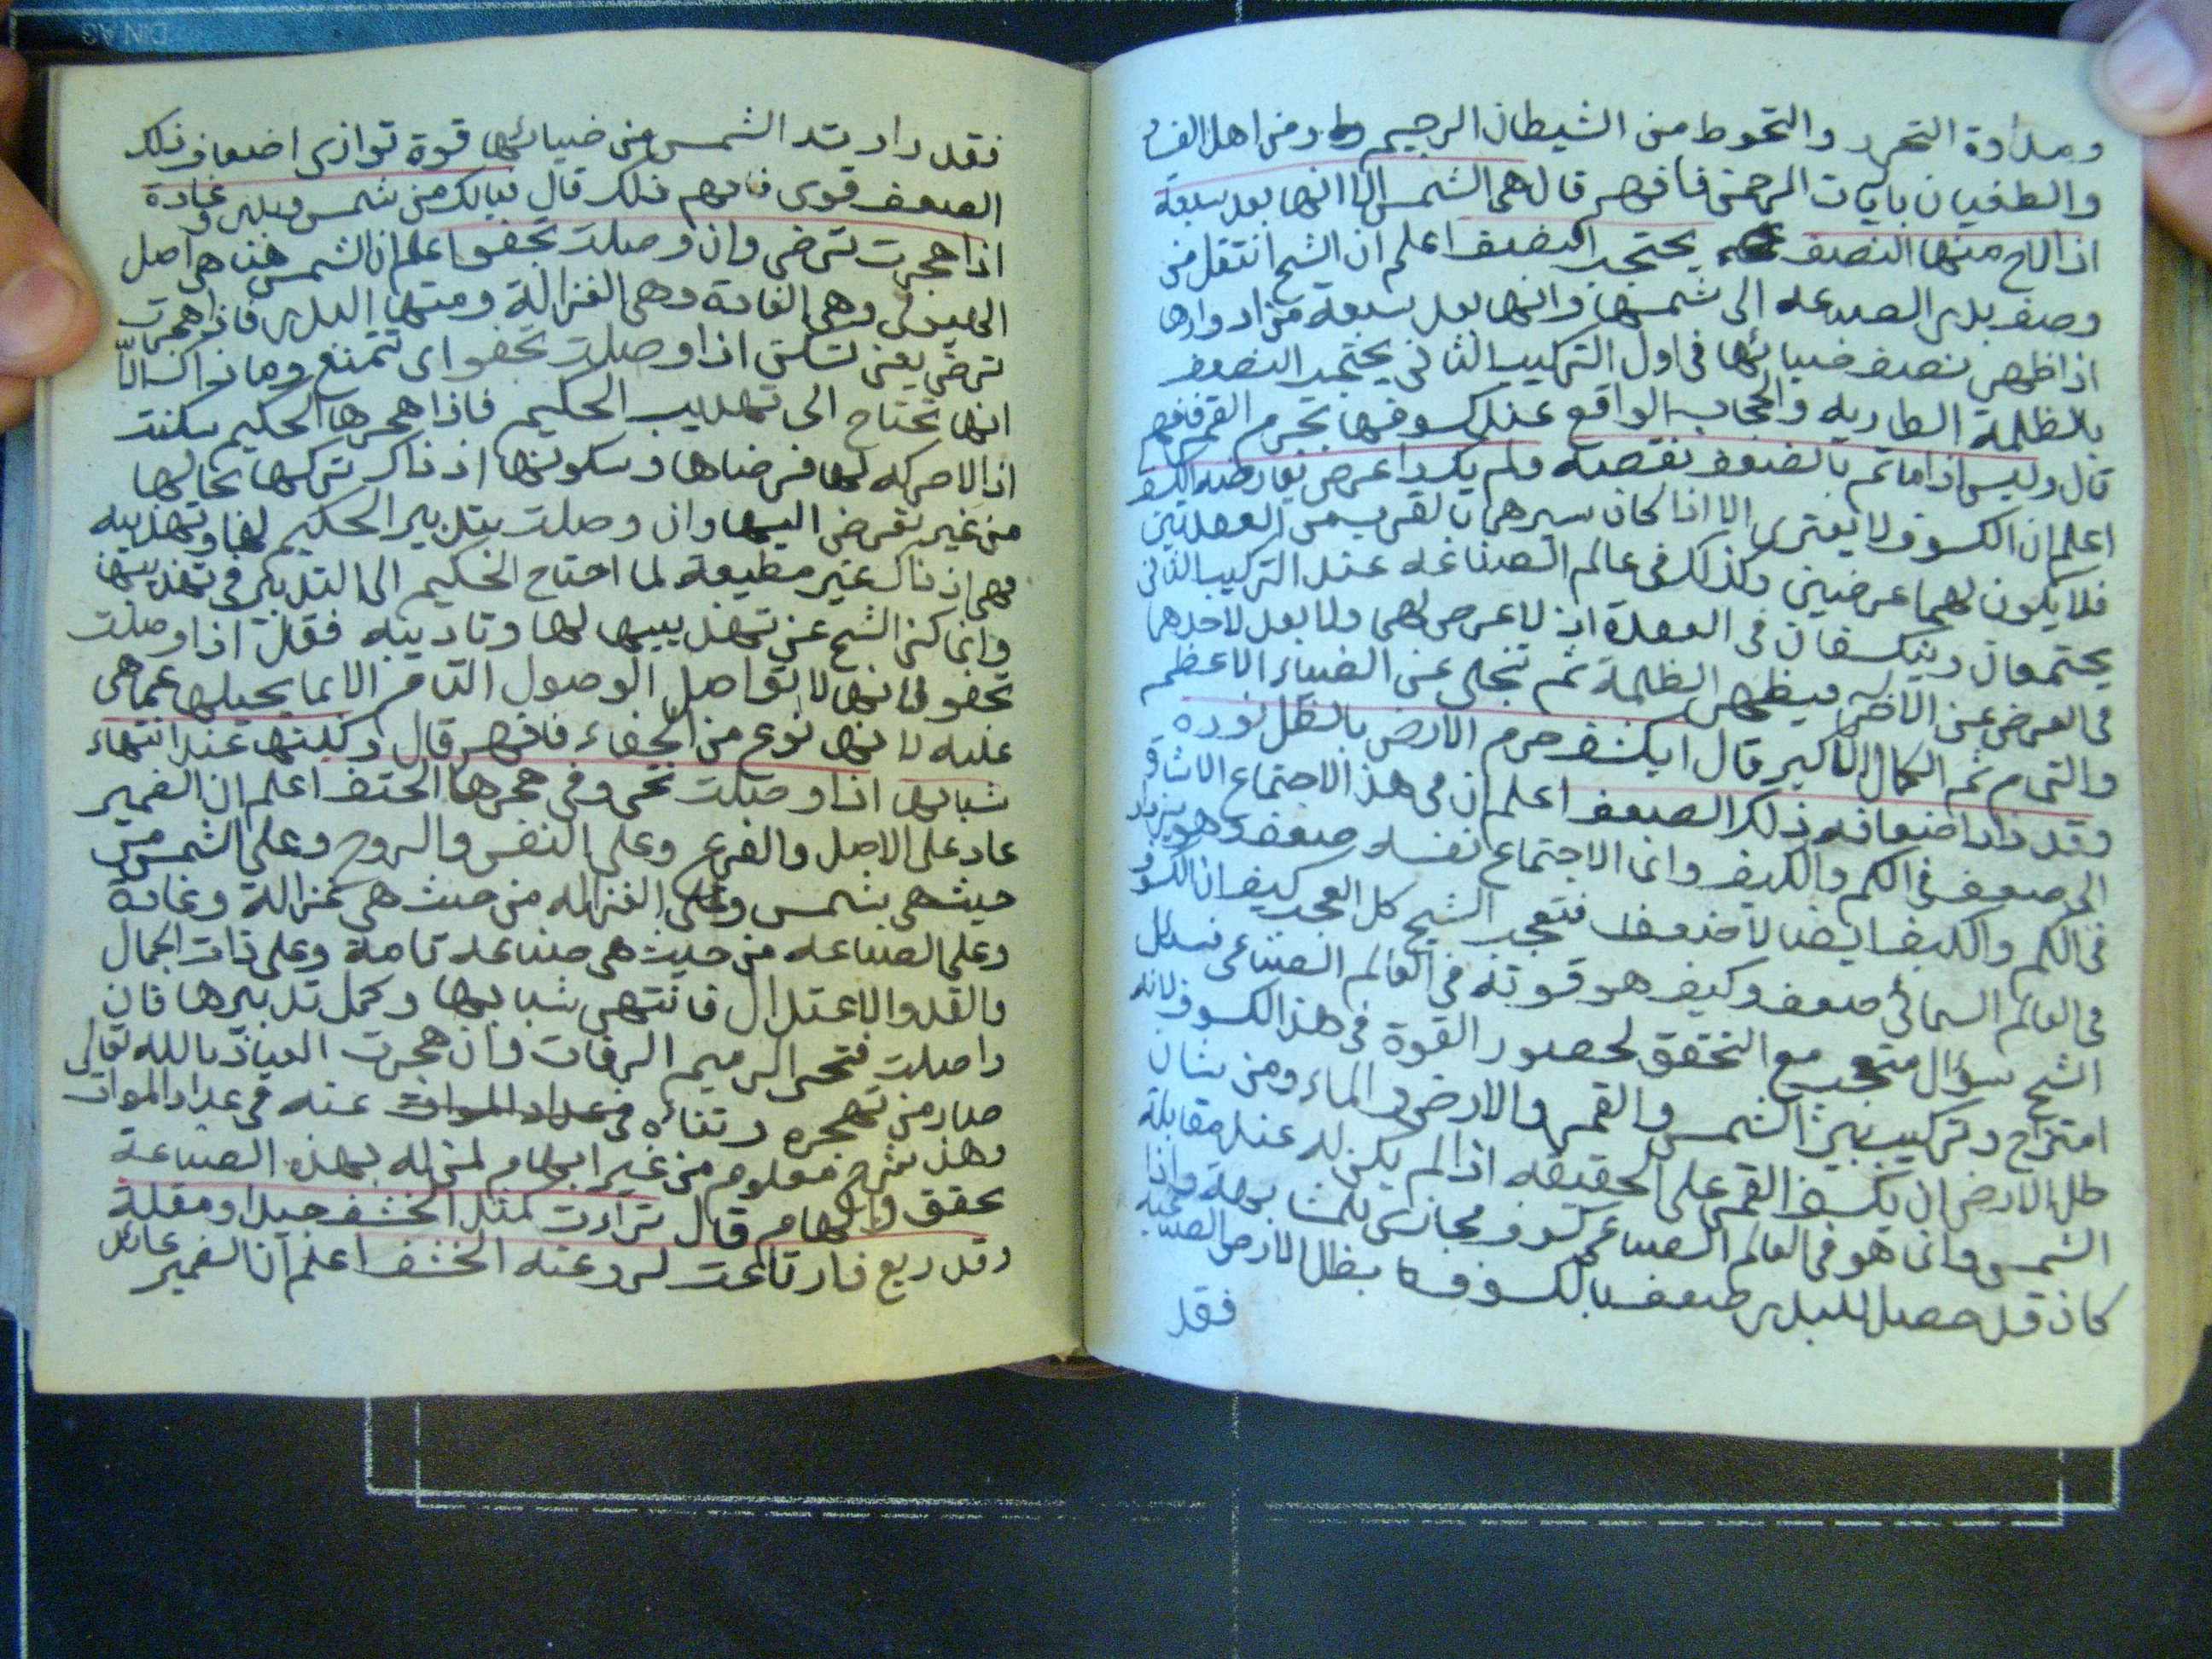 ومداوة التحرز والتحوط من الشيطان الرجيم وطرد من اهل الفساد
والطغيان بايات الرحمن فافهم قال هى الشمس الا انها بعد سبعة
اذا لاح منها النصف يحتجب النصف اعلم ان الشيخ انتقل من
وصف بدر الصناعه الى شمسها وانها بعد سبعة من ادوارها
اذا ظهر نصف ضيائها فى اول التركيب الثانى يحتجب النصف
بالظلمة الطاريه والحجاب الواقع عند كسوفها بجرم القمر فافهم
قال وليس اذا ما تم بالضعف نقصه ولم يك ذا عرض يعارضه الكسف
اعلم ان الكسوف لا يعترى الا اذا كان سيرهما بالقرب من العقدتين
فلا يكون لهما عرضين وكذلك فى عالم الصناعه عند التركيب الثانى
يجتمعان وينكسفان فى العقدة اذ لا عرض لهما ولا بعد لاحدهما
فى العرض عن الاخر فيظهر الظلمة ثم تنجلى عن الضياء الاعظم
والتمام ثم الكمال الاكبر قال ايكسف جرم الارض بالظل نوره
وقد زاد اضعافه ذلك الضعف اعلم ان فى هذا الاجتماع الاشاق
الى ضعف فى الكم والكيف وانما الاجتماع نفسه ضعف وهو يزداد
فى الكم والكيف ايضا لا ضعف فتعجب الشيخ كل العجب كيف ان الكسوف
فى العالم السمائى ضعف وكيف هو قوته فى العالم الصناعى فسال
الشيخ سؤال متعجب مع التحقق لحصور القوة فى هذا الكسوف لانه
امتزاج وتركيب بين الشمس والقمر والارض والماء ومن شان
ظل الارض ان يكسف القمر على الحقيقه اذا لم يكن له عند مقابلة
الشمس وانما هو فى العالم الصناعى كسوف مجازى بالمشابهة واذا
كان قد حصل للبدر ضعف بالكسوف بظل الارض الصناعيه
فقد
فقد زاد يتد الشمس من ضيائها قوة توازى اضعاف ذلك
الضعف قوى فافهم ذلك قال فيالك من شمس وبدر وغادة
اذا هجرت ترضى وان وصلت تجفو اعلم ان الشمس هنا هى اصل
الهيولى وهى الغادة وهى الغزالة ومنها البدر فاذا هجرت
ترضى يعنى تسكن اذا وصلت تجفو اى تتمنع وما ذاك الا
انها تحتاج الى تهذيب الحكيم فاذا هجرها الحكيم سكنت
اذ لا حركه لها فرضاها وسكونها اذ ذاك تركها بحالها
من غير تعرض اليها وان وصلت بتدبير الحكيم لها وتهذيبه
فهى اذ ذاك غير مطيعة لما احتاج الحكيم الى التدبير فى تهذيبها
وانما كنى الشيخ عن تهذيبها لها وتاديبه فقال اذا وصلت
تجفو فانها لا تواصل الوصول التام الا بما يحيلها عما هى
عليه لانها نوع من الجفاء فافهم قال ولكنها عند انتهاء
شبابها اذا وصلت تحيى وفى هجرها الحتف اعلم ان الضمير
عاد على الاصل والفرع وعلى النفس والروح وعلى الشمس من
حيث هى شمس وعلى الغزاله من حيث هى غزالة وغادة
وعلى الصناعه من حيث هى صناعه تامة وعلى ذات الجمال
والقد والاعتدال فانتهى شبابها وكمل تدبيرها فان
واصلت فتحيى الرميم الرفات وان هجرت العياذ بالله تعالى
صار من تهجره وتنائ عنه فى عداد الموات
وهذا شرح معلوم من غير ابهام لمن له بهذه الصناعة
تحقق والهام قال تراءت لمثل الخشف جيدا ومقلة
وقد ريع فارتاعت لروعته الخشف اعلم ان الضمير عائد